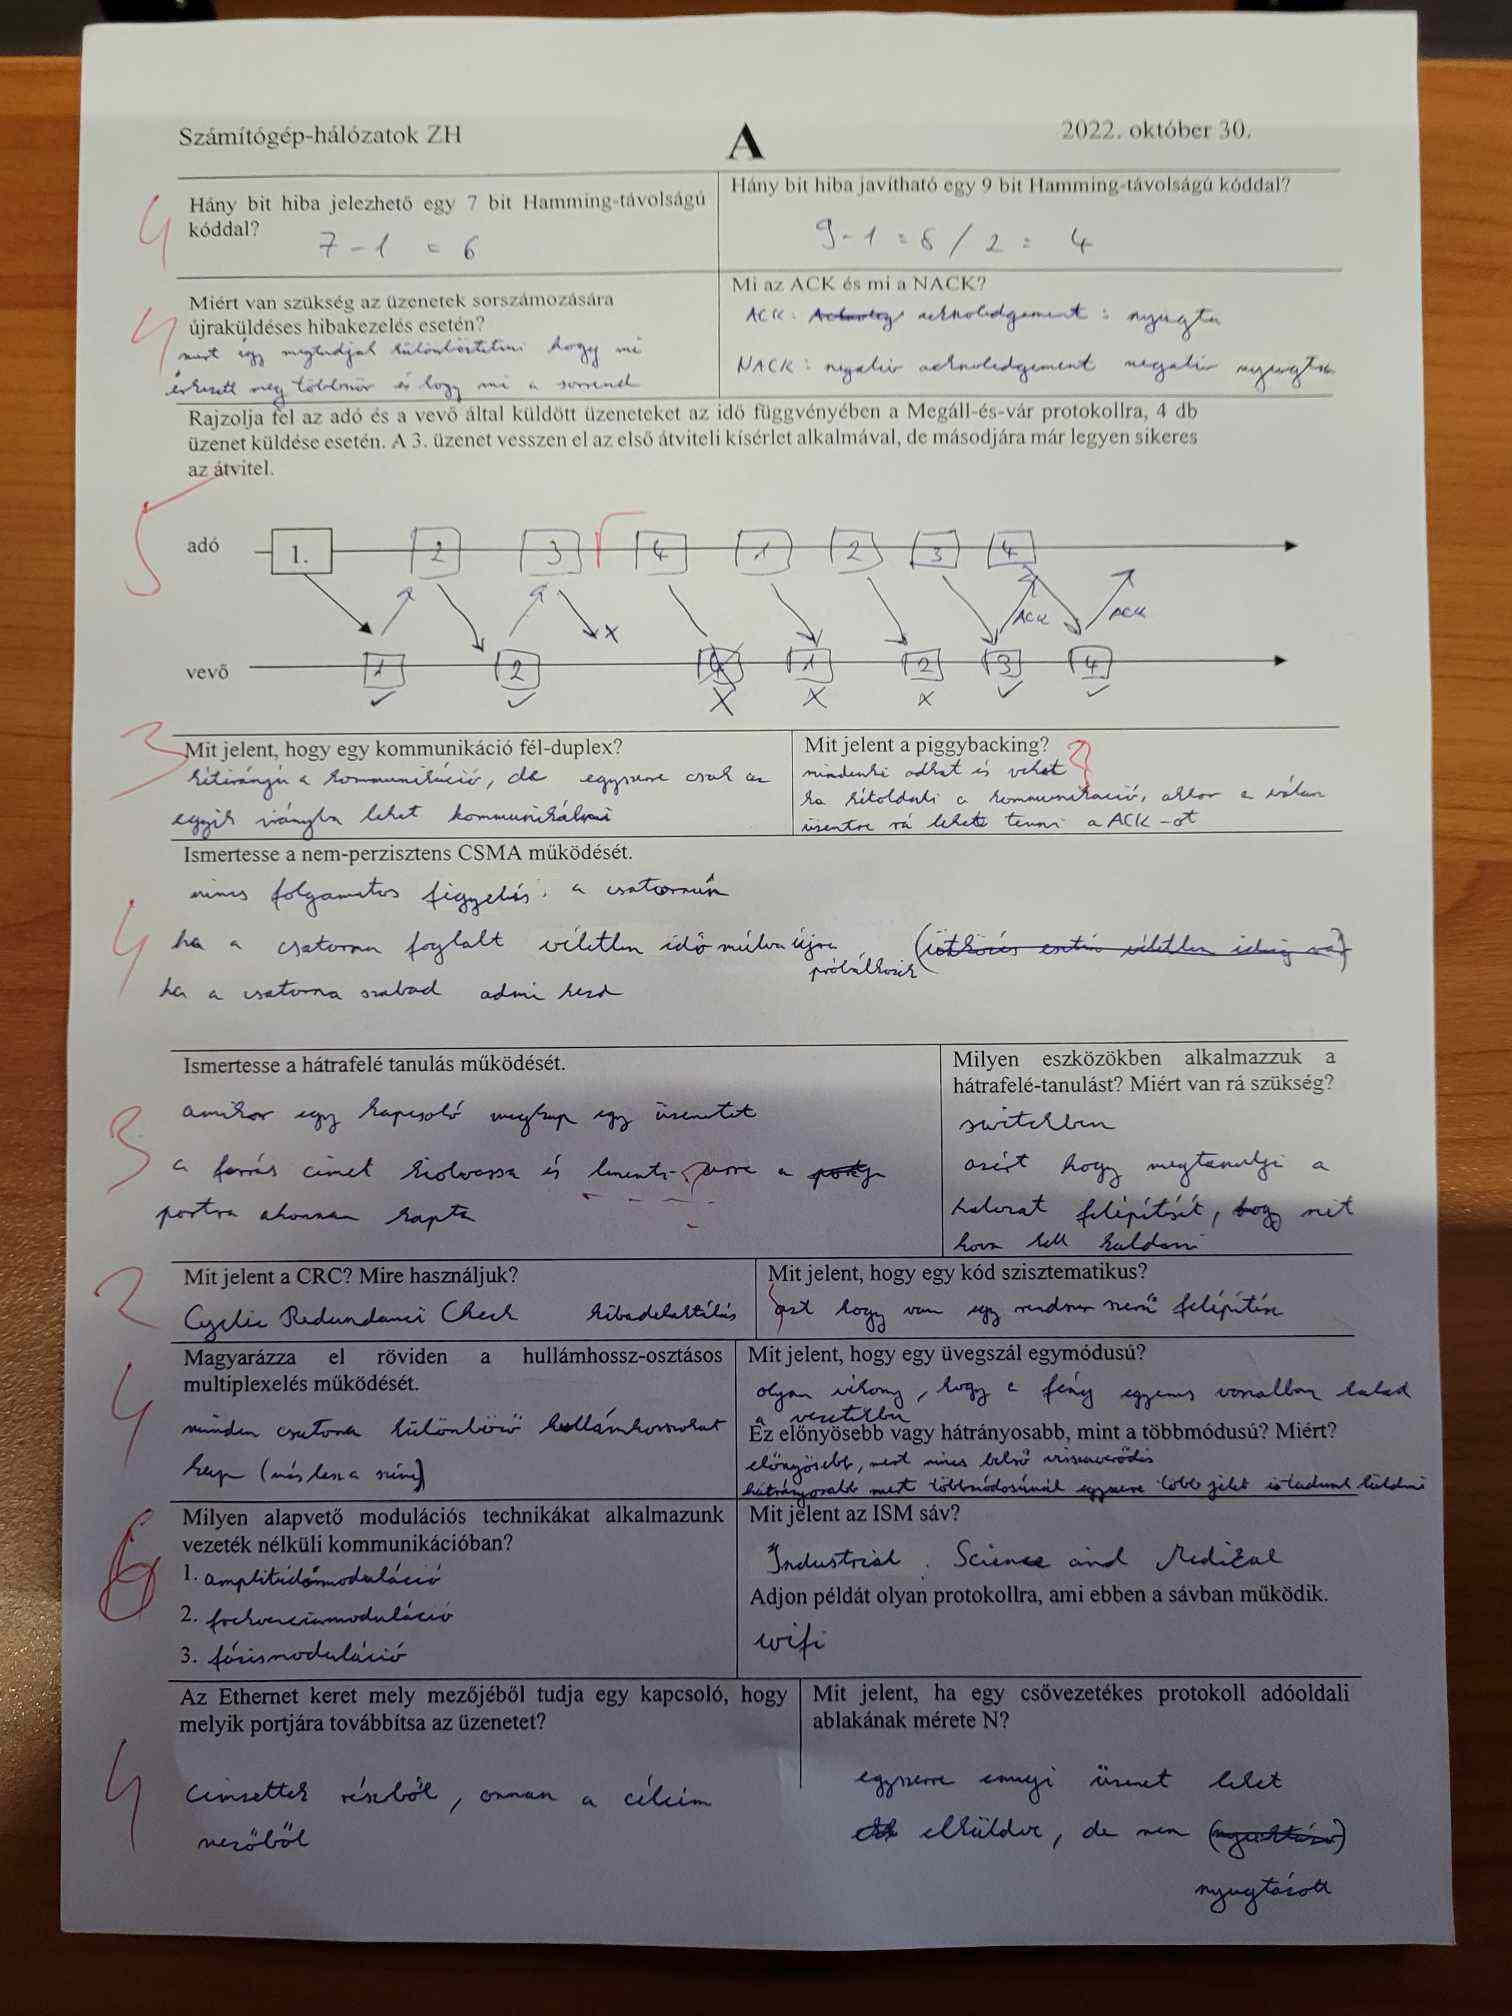 Számítógép-hálózatok ZH
A
2022. október 30.
4
Hány bit hiba jelezhető egy 7 bit Hamming-távolságú
kóddal?
7 - 1 = 6
Hány bit hiba javítható egy 9 bit Hamming-távolságú kóddal?
9-1 = 8 / 2 = 4
4
Miért van szükség az üzenetek sorszámozására
újraküldéses hibakezelés esetén?
mert így megtudjuk különböztetni hogy mi
érkezett meg többször és hogy mi a sorrend
Mi az ACK és mi a NACK?
ACK: acknoledgement : nyugta
NACK: negatív acknoledgement negatív nyugta
Rajzolja fel az adó és a vevő által küldött üzeneteket az idő függvényében a Megáll-és-vár protokollra, 4 db
üzenet küldése esetén. A 3. üzenet vesszen el az első átviteli kísérlet alkalmával, de másodjára már legyen sikeres
az átvitel.
5
adó 1. 2 3 4 1 2 3 4
X ACK ACK
vevő 1 2 4 1 2 3 4
✓ ✓ X X X ✓ ✓
3
Mit jelent, hogy egy kommunikáció fél-duplex?
kétirányú a kommunikáció, de egyszerre csak az
egyik irányba lehet kommunikálni
Mit jelent a piggybacking?
mindenki adhat és vehet
ha kétoldali a kommunikació, akkor a válasz
üzentre rá lehet tenni a ACK-ot
Ismertesse a nem-perzisztens CSMA működését.
nincs folgamatos figyelés a csatornán
4
ha a csatorna foglalt véletlen idő múlva újra
próbálkozik
(ütközés esetén véletlen ideig vár)
ha a csatorna szabad adni kezd
Ismertesse a hátrafelé tanulás működését.
3
amikor egy kapcsoló megkap egy üzenetet
a forrás címet kiolvassa és lmenti a
portra ahonnan kapta
Milyen eszközökben alkalmazzuk a
hátrafelé-tanulást? Miért van rá szükség?
switchben
azért hogy megtanulja a
halozat felépítését, hogy mit
hova kell küldeni
2
Mit jelent a CRC? Mire használjuk?
Cyclic Redundanci Check hibadetektálás
Mit jelent, hogy egy kód szisztematikus?
azt hogy van egy rendszer szerű felépítése
4
Magyarázza el röviden a hullámhossz-osztásos
multiplexelés működését.
minden csatorna különböző hullámhosszokat
kap (más lesz a színe)
Mit jelent, hogy egy üvegszál egymódusú?
olyan vékony, hogy a fény egyenes vonalban halad
a vezetékben
Ez előnyösebb vagy hátrányosabb, mint a többmódusú? Miért?
előnyösebb, mert nincs belső visszaverődés
hátrányosabb mert többmódosúnál egyszere több jelet is tudunk küldeni
6
Milyen alapvető modulációs technikákat alkalmazunk
vezeték nélküli kommunikációban?
1. amplitúdómoduláció
2. frekvenciamoduláció
3. fázismoduláció
Mit jelent az ISM sáv?
Industrial Science and Medical
Adjon példát olyan protokollra, ami ebben a sávban működik.
wifi
4
Az Ethernet keret mely mezőjéből tudja egy kapcsoló, hogy
melyik portjára továbbítsa az üzenetet?
részből, onnan a célcím
mezőből
Mit jelent, ha egy csővezetékes protokoll adóoldali
ablakának mérete N?
egyszerre ennyi üzenet lehet
elküldve, de nem
nyugtázott